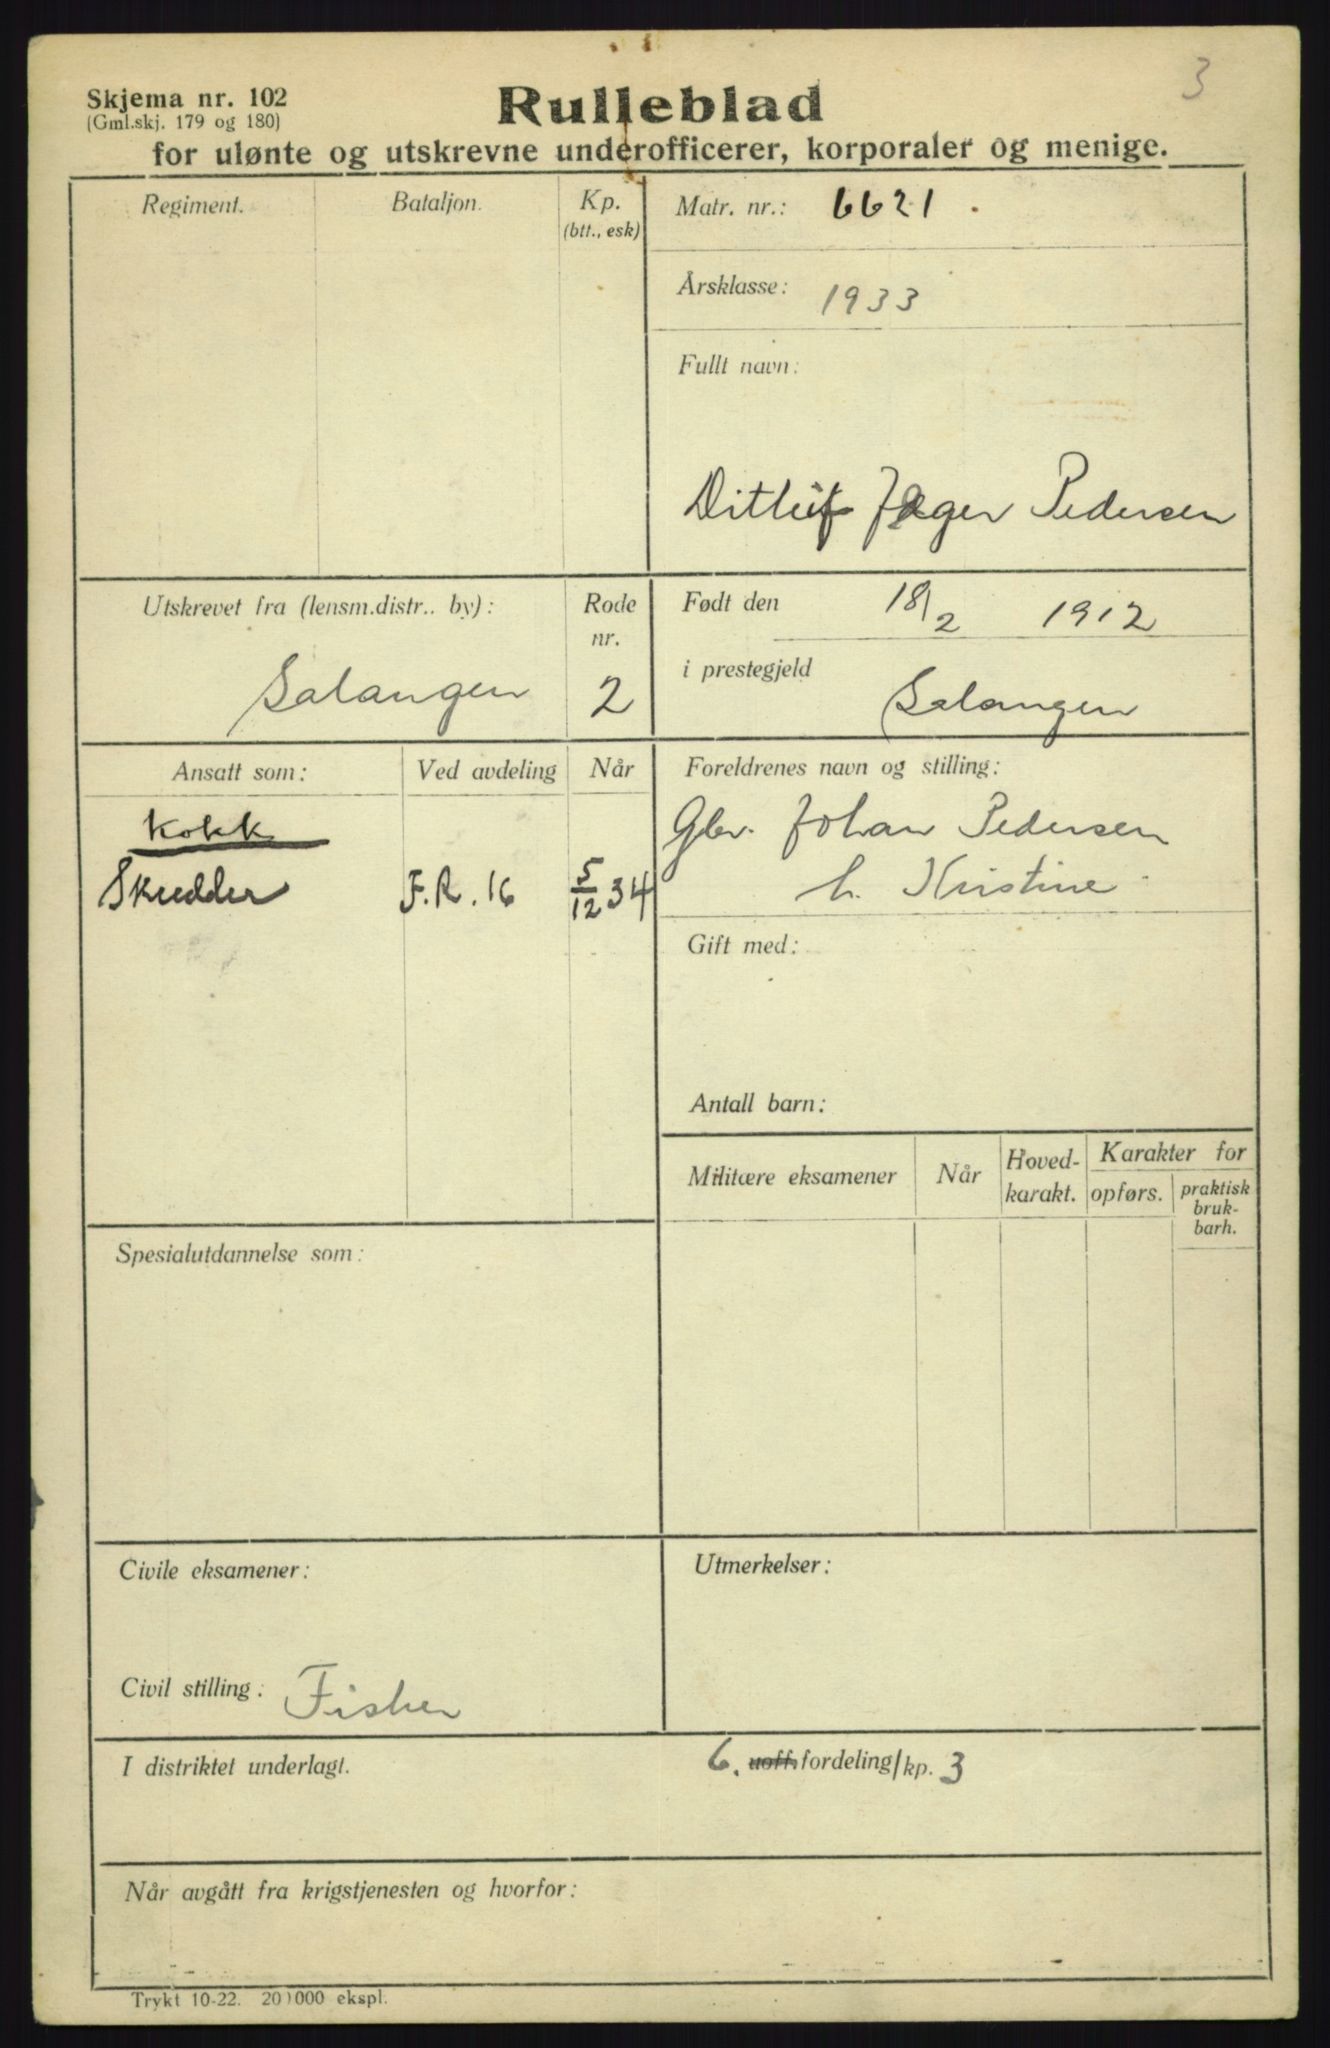 3
Skjema nr. 102
(Gml.skj. 179 og 180)
Rulleblad
for ulønte og utskrevne underofficerer, korporaler og menige.
Regiment.
Bataljon.
Kp.
(btt., esk)
Matr. nr.: 6621
Årsklasse: 1933
Fullt navn:
Ditluf Jæger Pedersen
Utskrevet fra (lensm.distr.. by):
Salangen
Rode
nr.
2
Født den 18/2 1912
i prestegjeld Salangen
Ansatt som:
Ved avdeling
Når
Kokk
Skudder F.R. 16 5/12 34
Foreldrenes navn og stilling:
Gbr. Johan Pedersen
h. Kristine
Gift med:
Antall barn:
Militære eksamener
Når
Hoved-
karakt.
Karakter for
opførs.
praktisk
bruk-
barh.
Spesialutdannelse som:
Civile eksamener:
Civil stilling: Fisker
Utmerkelser:
I distriktet underlagt.
6. uoff. fordeling/kp. 3
Når avgått fra krigstjenesten og hvorfor:
Trykt 10-22. 20 000 ekspl.